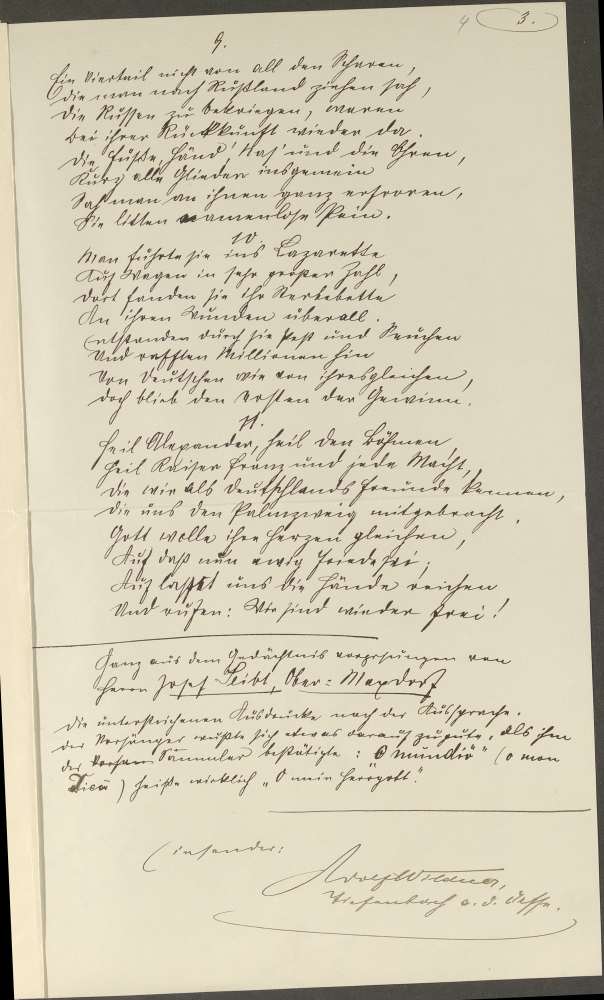 4 3.
9.
Ein Viertail nicht von all den Scharen,
die man nach Rußland ziehen sah,
Die Russen zu bekriegen, waren
bei ihrer Rückkunft wieder da.
Die Füße, Händ', Nas' und die Ohren,
Kurz alle Glieder insgemein
Sah man an ihnen ganz erfroren,
Sie litten namenlose Pein.
10.
Man führte sie ins Lazarette
Auf Wagen in sehr großer Zahl,
Dort fanden sie ihr Sterbebette
An ihren Wunden überall.
Entstanden durch sie Pest und Seuchen
Und rafften Millionen hin
Von Deutschen wie von ihresgleichen,
doch blieb den Ersten der Gewinn.
11.
Heil Alexander, Heil den Böhmen
Heil Kaiser Franz und jede Macht,
Die wir als Deutschlands Freunde kennen,
Die uns den Palmzweig mitgebracht.
Gott wolle ihre Herzen gleichen,
Auf daß nun ewig Friede sei;
Auf laßt uns die Hände reichen
Und rufen: Wir sind wieder frei!
Ganz aus dem Gedächtnis vorgesungen von
Herrn Josef Seibt, Ober-Maxdorf
Die unterstrichenen Ausdrücke nach der Aussprache.
der Vorsänger wußte sich etwas darauf zugute, als ihm
der Sammler bestätigte: "O mundiö" (o mon
Dieu) heiße wirklich "O mein Herrgott".
Einsender:
Adolf Wildner,
Tiefenbach a. d. Desse.